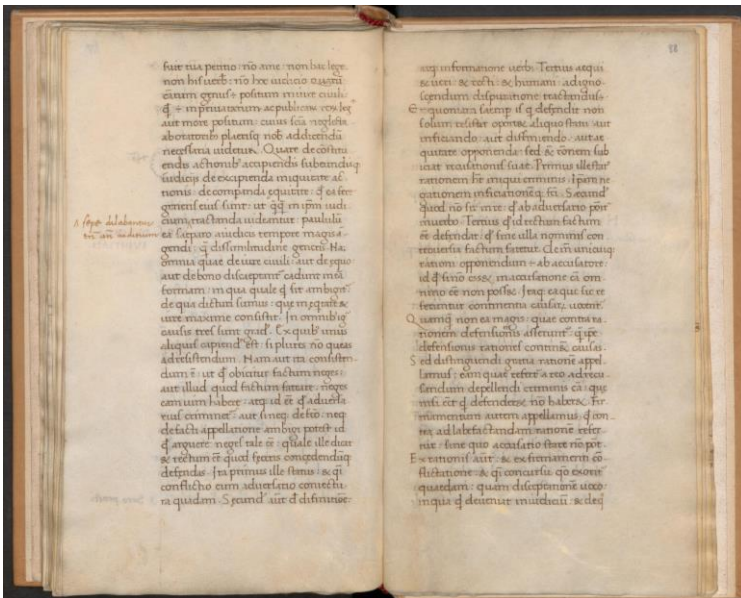 fuit tua petitio · nō ante · non hac lege
non his uerb · nō hoc iudicio quarū
causarum genus ÷ positum in iure ciuili
q ÷ in priuatarum ac publicarū rerū lege
aut more positum · cuius scia neglecta
ab oratorib plerisq nob ad dicendū
necessaria uidetur. Quare de cōstitu
endis actionib accipiendis subeundisq
iudiciis de excipienda iniquitate ac
tionis · de comparanda equitate · q ea fere
generis eius sunt · ut q̄q̄ in ipsum iudi
cium
tractanda uideantur · paululū
ea separo a iudicio tempore magis a
gendi · q̄ dissimilitudine generis. Nā
omnia quae de iure ciuili · aut de equo
aut de bono disceptant cadunt in eā
formam · in qua quale q sit ambigit
de qua dicturi sumus · que in equitate &
iure maxime consistit. In omnib ig
causis tres sunt grad. Ex quib unus
aliquis capiend est · si plures nō queas
ad resistendum. Nam aut ita consisten
dum ē · ut q obicitur factum neges ·
aut illud quod factum fateare · neges
eam uim habere · atq id ee q aduersa
rius criminet · aut si neq de facto · neq
de facti appellatione ambigi potest id
q arguere neges tale eē · quale ille dicat
& rectum eē quod feceris concedendūq
defendas. Ita primus ille status · & q̄i
conflictio cum aduersario coniectu
ra quadam. Secund aūt d difinitione
saepe dilabantur
18
atq informatione uerbi. Tertius aequi
& ueri · & recti · & humani ad igno
scendum disputatione tractandus ÷
Et quoniam semp is q defendit non
solum resistat oportet aliquo statu · aut
inficiando aut diffiniendo · aut ae
quitate opponenda · sed & rōnem sub
iciat recusationis suae. Primus ille status
rationem h& iniqui criminis · Ipsam ne
gationem inficionemq facti. Secund
quod nō sit in re · q ab aduersario pōit
in uerbo. Tertius q id rectum factum
eē defendat · q sine ulla nominis con
trouersia factum fatetur. De in unicuiq
rationi opponendum ÷ ab accusatore
id q si nō eet in accusatione cā om
nino eē non posset. Itaq ea que sic re
feruntur continentia causarū uocent
Quamq non ea magis · quae contra ra
tionem defensionis afferunt · q ipse
defensionis rationes continet causas.
Sed distinguendi gratia rationē appel
lamus · eam quae refert a reo ad recu
sandum depellendi criminis cā · que
nisi eet q defenderet nō haberet. Fir
mamentum autem appellamus · q con
tra ad labefactandam rationē refer
tur · sine quo accusatio stare nō pot
Ex rationis aūt · & ex firmamenti cō
flictatione · & q̄i concursu qō exorit
quaedam · quam disceptationē uoco ·
in qua q d ueniat in iudiciū · & de q